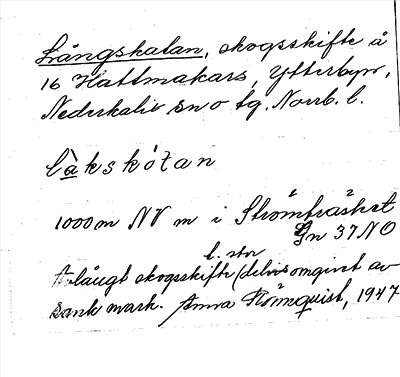 Långskatan, skogsskifte å
16 Hattmakars, Ytterbyn,
Nederkalix sn o tg. Norrb. l.
làkskótan
1000 m NV m i Strömträsket
Gn 37 NO
l. stor
Avlångt skogsskifte (delvis omgivet av
sank mark. Anna Römquist, 1947